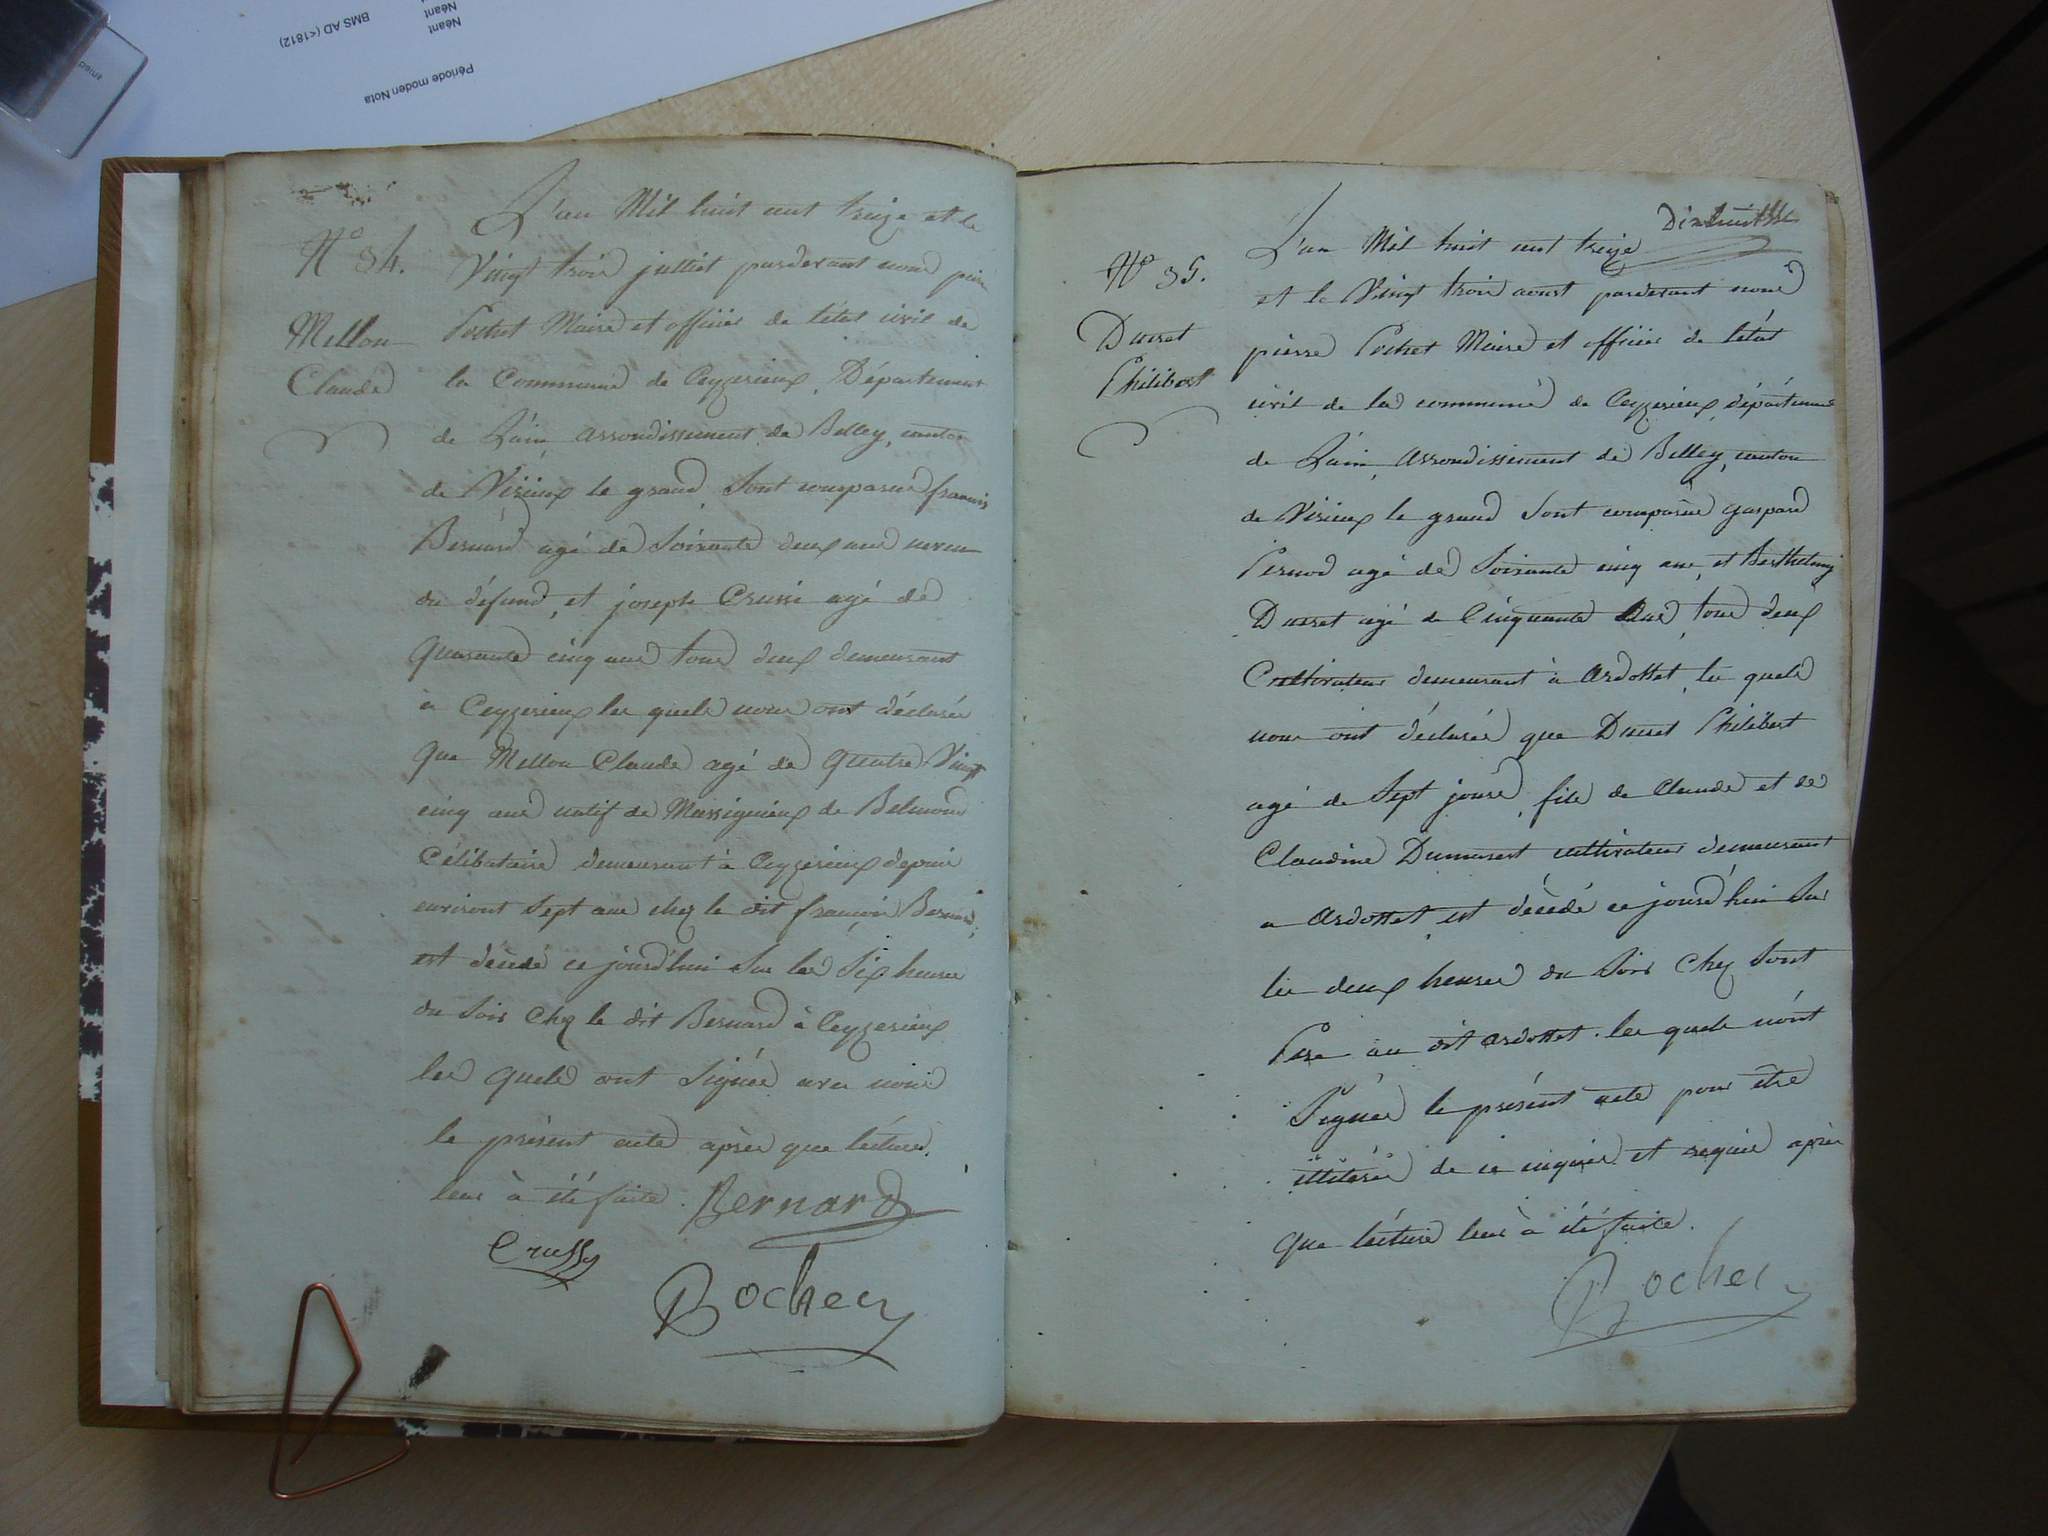 Période moden Nota
BMS AD (<1812)
Néant
Néant
N° 34.
Mellon
Claude
L'an Mil huit cent treize et le
Vingt trois juilliet pardevant nous pierre
Pochet Maire et officier de l'état civil de
la Commune de Ceyzerieux, Département
de L'ain, arrondissement de Belley, canton
de Virieux le grand, Sont comparus francois
Bernard agé de Soixante deux ans neveu
du défund, et joseph Crussi agé de
Quarante cinq ans tous deux demeurant
à Ceyzerieux les quels nous ont déclarés
que Mellon Claude agé de quatre Vingt
cinq ans natif de Massignieux de Belmond
Célibataire demeurant à Ceyzerieux depuis
environt Sept ans chez le dit françois Bernard,
est décédé ce jourd'hui Sur les Six heures
du Soir Chez le dit Bernard à Ceyzerieux
les quels ont Signés avec nous
le présent acte après que lécture
leur à été faite. Bernard
Crussy
Rochet
Dixhuit
N° 35.
Ducret
Philibert
L'an Mil huit cent treize
et le Vingt trois aoust pardevant nous
pierre Pochet Maire et officier de l'état
civil de la commune de Ceyzerieux, département
de L'ain, arrondissement de Belley, canton
de Virieux le grand Sont comparus gaspard
Pernod agé de Soixante cinq ans, et Berthelemy
Ducret agé de Cinquante ans, tous deux
Cultivateur demeurant à ardosset, les quels
nous ont déclarés que Ducret Philibert
agé de Sept jours, fils de Claude et de
Claudine Dumarest cultivateur demeurant
a ardosset, est décédé ce jourd'hui Sur
les deux heures du Soir Chez Sont
Pere au dit ardosset. les quels n'ont
Signés le présent acte pour être
illiterés de ce enquis et requis après
que lécture leur à été faite.
Rochet